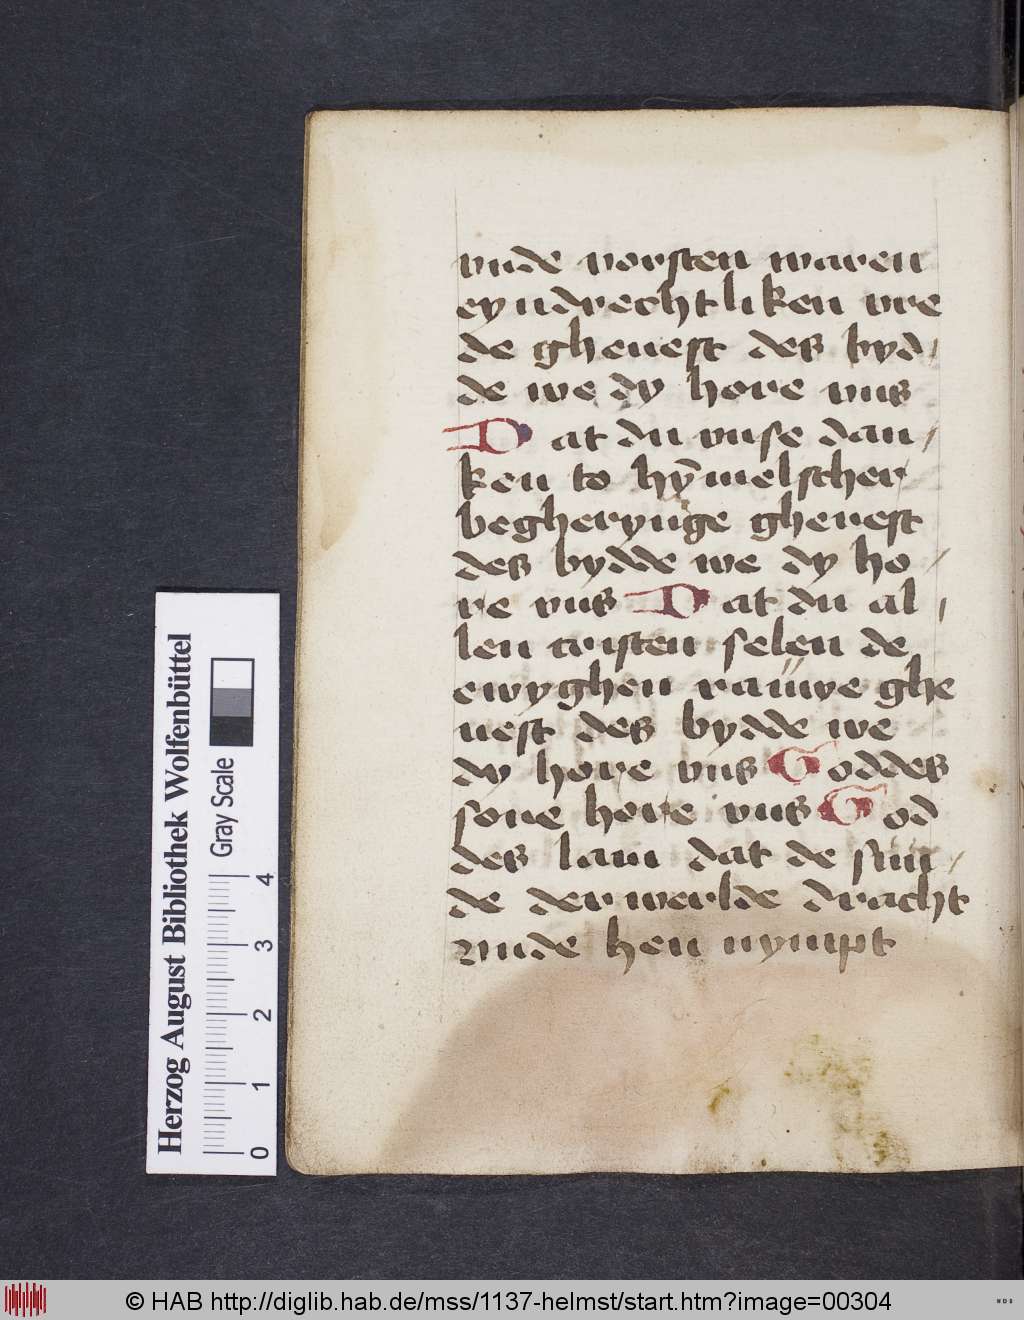 vnde vorsten waren
eyndrechtliken vre
de gheuest des byd/
de we dy hore vns
Dat du vnse dan/
ken to hȳmelscher
begherynge gheuest
des bydde we dy ho/
re vns Dat du al/
len cristen selen de
ewyghen rauwe ghe
uest des bydde we
dy hore vns Goddes
sone hore vns God
des lam dat de sun/
de der werlde dracht
vnde hen nympt
Herzog August Bibliothek Wolfenbüttel
Gray Scale
0 1 2 3 4
© HAB http://diglib.hab.de/mss/1137-helmst/start.htm?image=00304